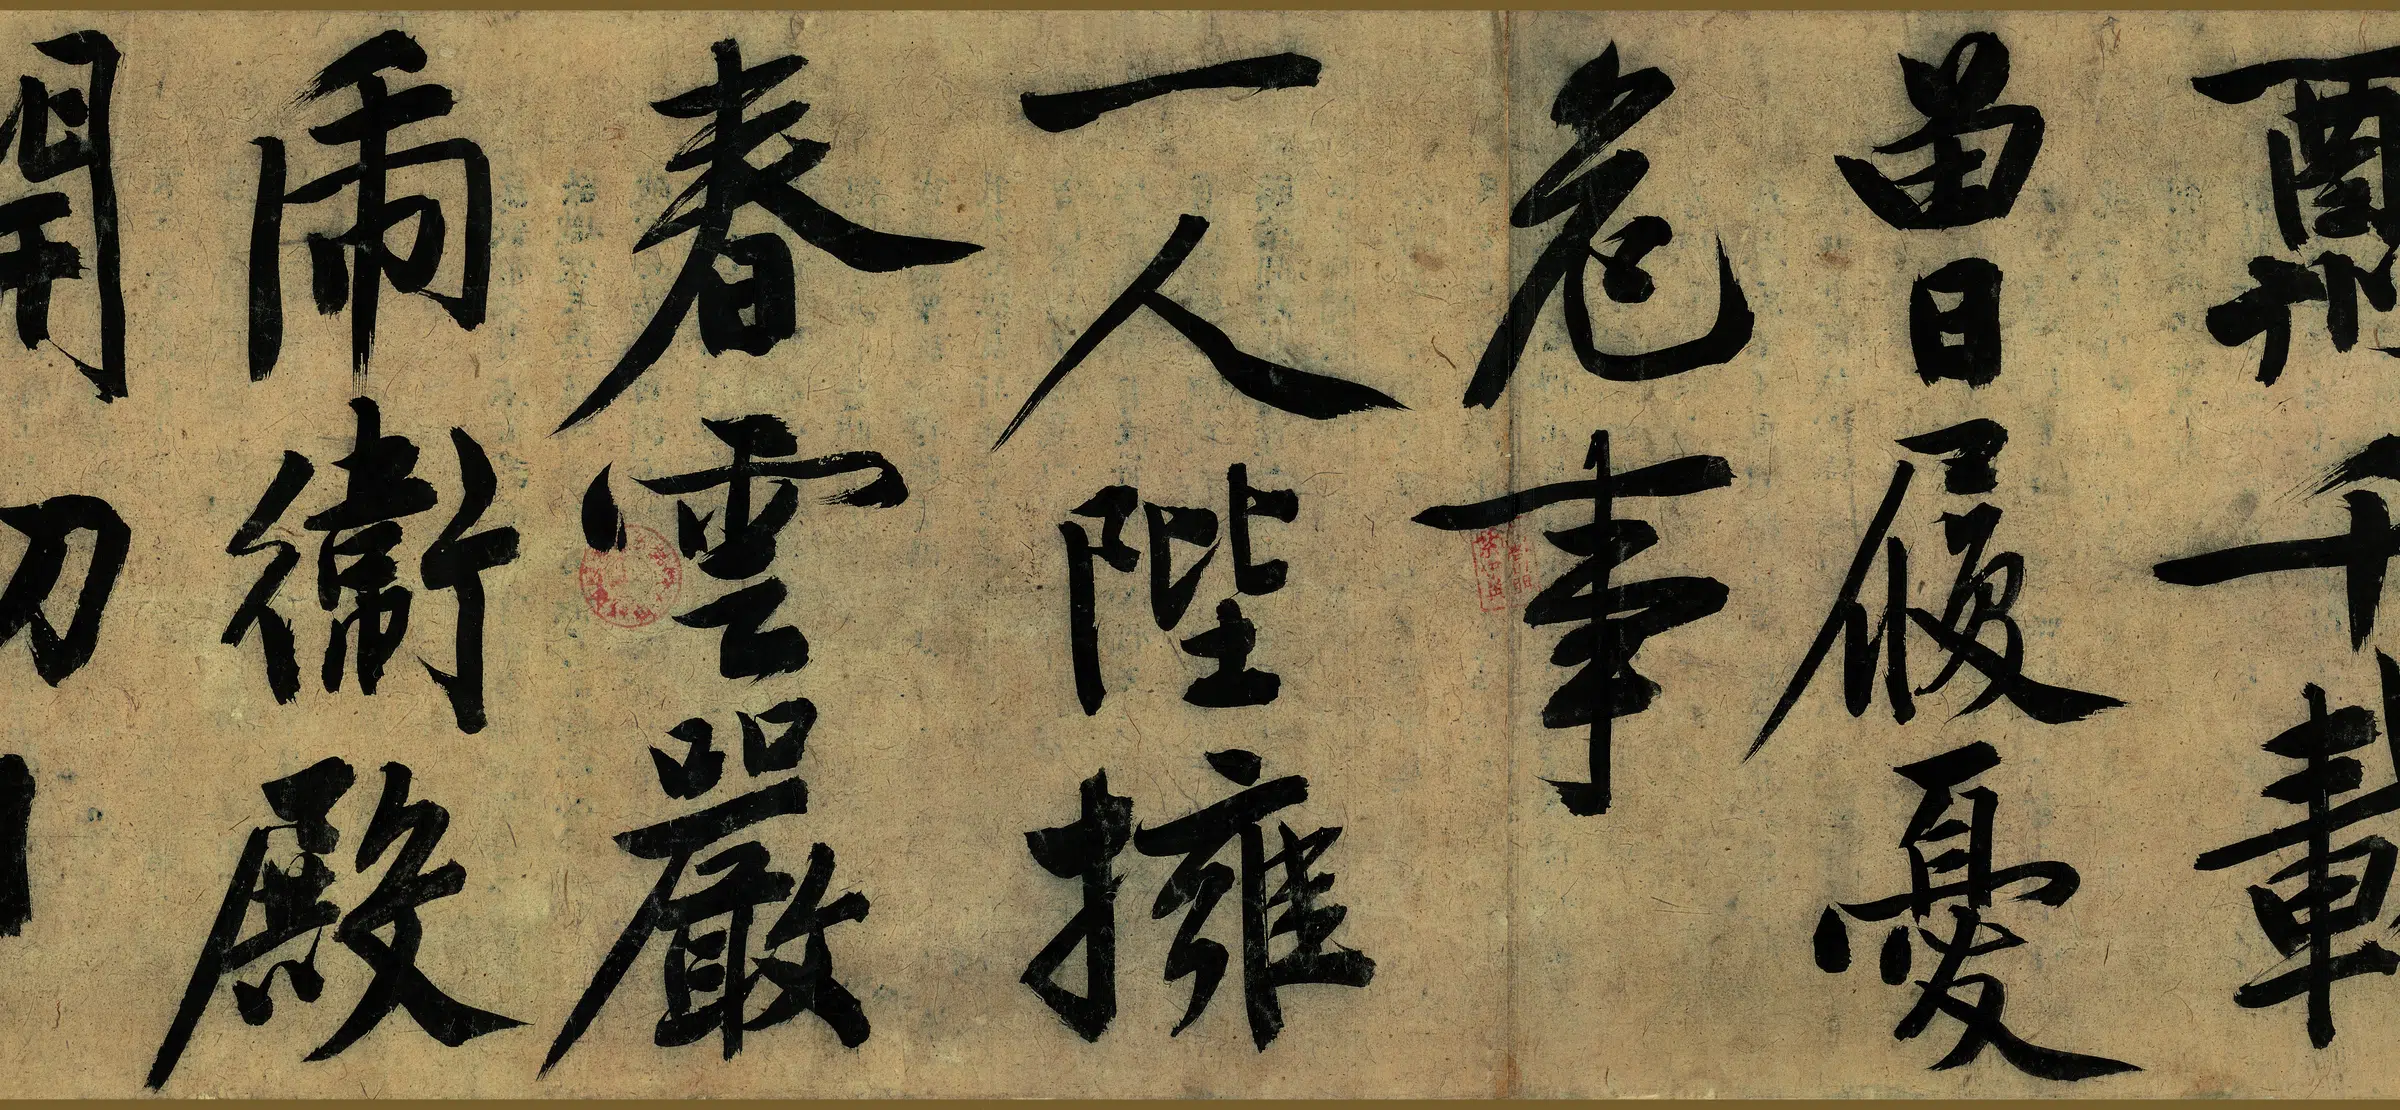 千載
曾履憂
危事
一人陛擁
春雲嚴
乕衛殿
開